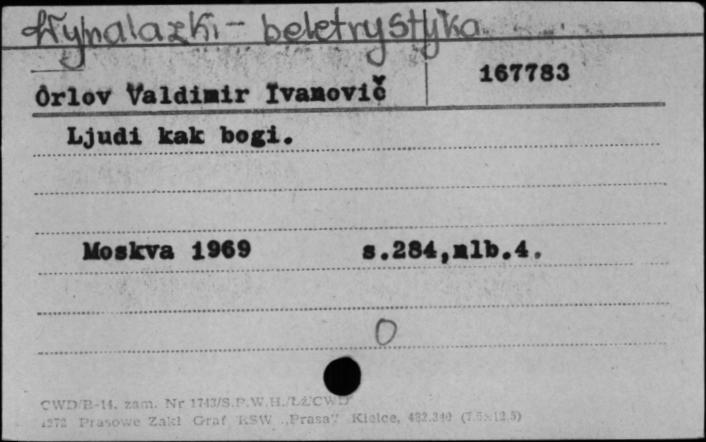 Wynalazki - beletrystyka
167783
Orlov Valdimir Ivanovič
Ljudi kak bogi.
Moskva 1969 s.284,nlb.4.
0
CWD/B-14. zam. Nr 1743/S.P.W.H./LZCWD
1272 Prasowe Zakł Graf RSW „Prasa" Kielce, 482.340 (7.5×12.5)